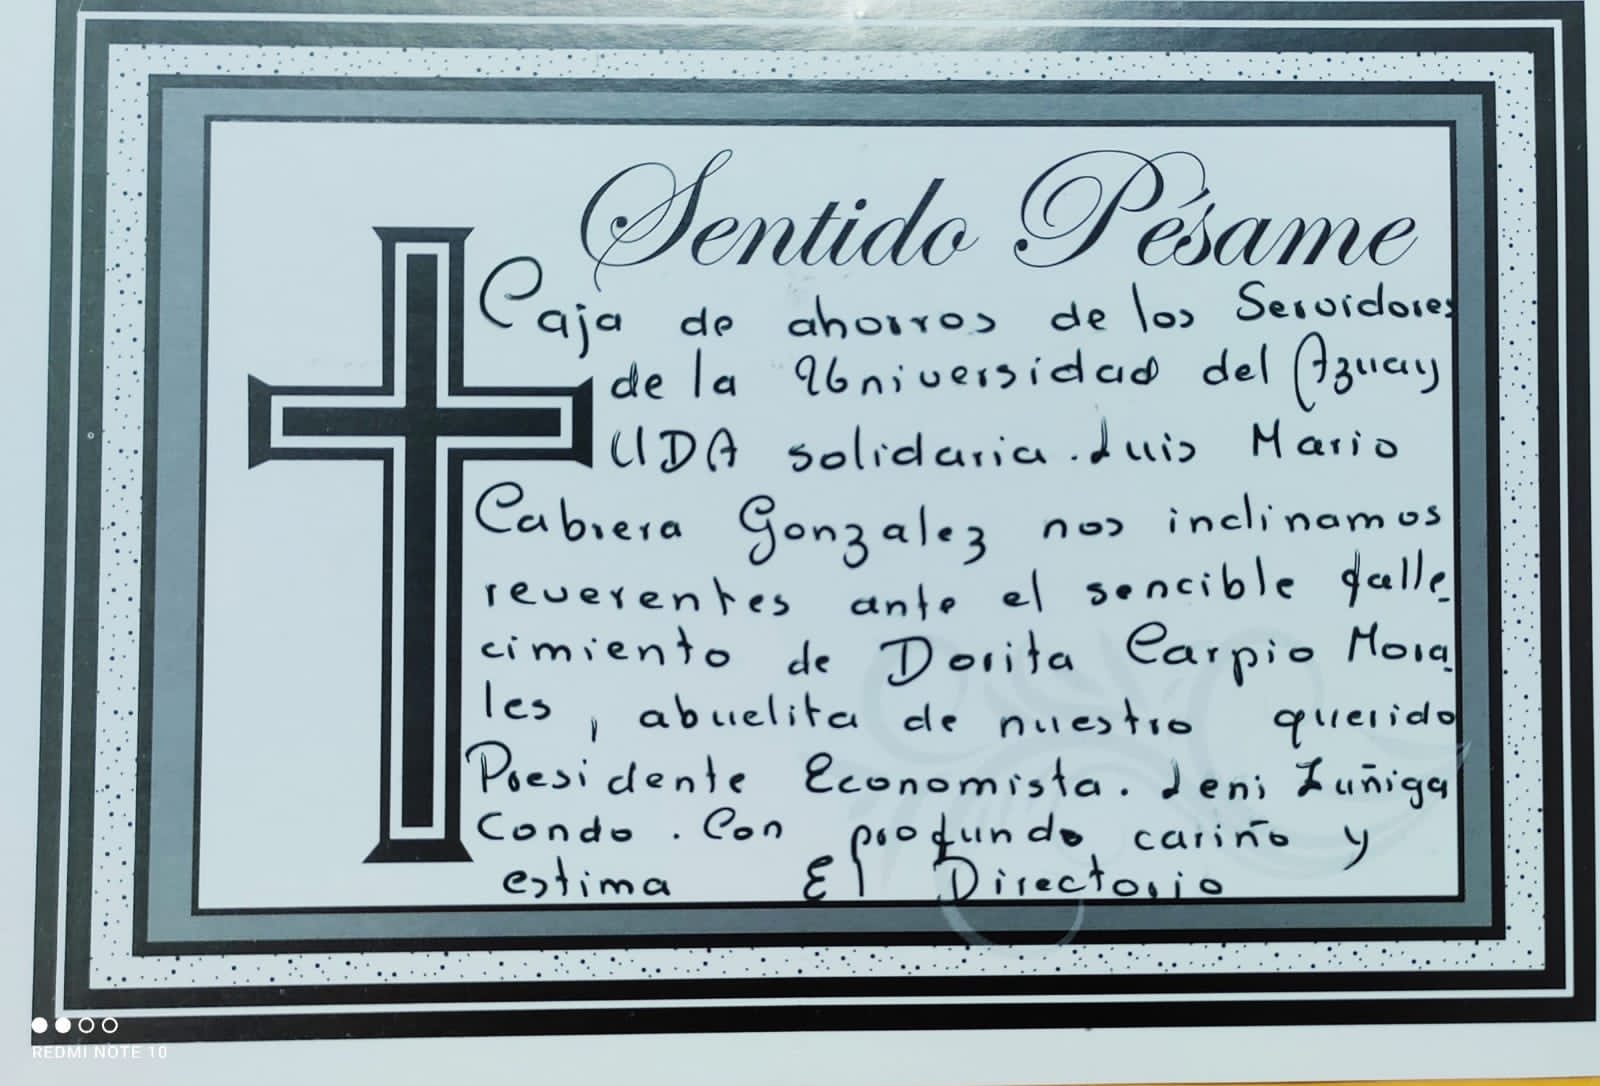 Sentido Pésame
Caja de ahorros de los Servidores
de la Universidad del Azuay
UDA solidaria. Luis Mario
Cabrera Gonzalez nos inclinamos
reverentes ante el sencible falle_
cimiento de Dorita Carpio Mora_
les, abuelita de nuestro querido
Presidente Economista. Leni Zuñiga
Condo. Con profundo cariño y
estima El Directorio
REDMI NOTE 10